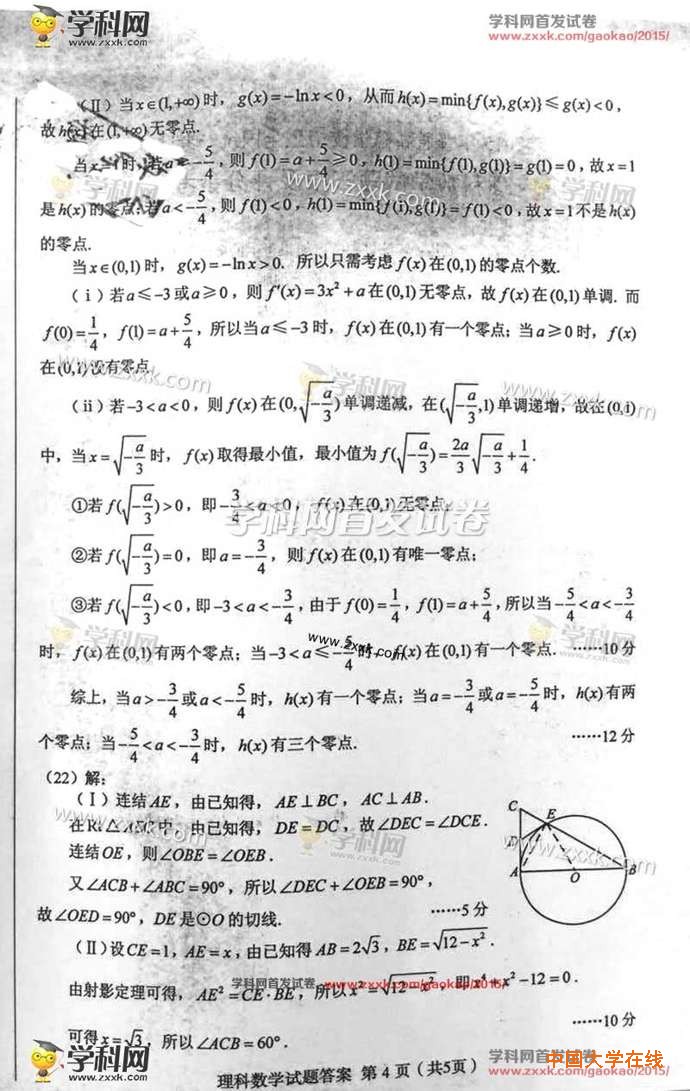 学科网
www.zxxk.com
学科网首发试卷
www.zxxk.com/gaokao/2015/
(Ⅱ)当x∈(1,+∞)时，g(x)=-ln x<0，从而h(x)=min{f(x),g(x)}≤g(x)<0，
故h(x)在(1,+∞)无零点.
当x=1时，若a≥-5/4，则f(1)=a+5/4≥0，h(1)=min{f(1),g(1)}=g(1)=0，故x=1
是h(x)的零点；若a<-5/4，则f(1)<0，h(1)=min{f(1),g(1)}=f(1)<0，故x=1不是h(x)
的零点.
当x∈(0,1)时，g(x)=-ln x>0. 所以只需考虑f(x)在(0,1)的零点个数.
(ⅰ)若a≤-3或a≥0，则f′(x)=3x²+a在(0,1)无零点，故f(x)在(0,1)单调. 而
f(0)=1/4，f(1)=a+5/4，所以当a≤-3时，f(x)在(0,1)有一个零点；当a≥0时，f(x)
在(0,1)没有零点.
(ⅱ)若-3<a<0，则f(x)在(0,√(-a/3))单调递减，在(√(-a/3),1)单调递增，故在(0,1)
中，当x=√(-a/3)时，f(x)取得最小值，最小值为f(√(-a/3))=2a/3√(-a/3)+1/4.
①若f(√(-a/3))>0，即-3/4<a<0，f(x)在(0,1)无零点.
②若f(√(-a/3))=0，即a=-3/4，则f(x)在(0,1)有唯一零点；
③若f(√(-a/3))<0，即-3<a<-3/4，由于f(0)=1/4，f(1)=a+5/4，所以当-5/4<a<-3/4
时，f(x)在(0,1)有两个零点；当-3<a≤-5/4时，f(x)在(0,1)有一个零点. ……10分
综上，当a>-3/4或a<-5/4时，h(x)有一个零点；当a=-3/4或a=-5/4时，h(x)有两
个零点；当-5/4<a<-3/4时，h(x)有三个零点. ……12分
(22)解：
(Ⅰ)连结AE，由已知得，AE⊥BC，AC⊥AB.
在Rt△AEC中，由已知得，DE=DC，故∠DEC=∠DCE.
连结OE，则∠OBE=∠OEB.
又∠ACB+∠ABC=90°，所以∠DEC+∠OEB=90°，
故∠OED=90°，DE是⊙O的切线. ……5分
C
E
D
A
O
B
(Ⅱ)设CE=1，AE=x，由已知得AB=2√3，BE=√(12-x²).
由射影定理可得，AE²=CE·BE，所以x²=√(12-x²)，即x⁴+x²-12=0.
可得x=√3，所以∠ACB=60°. ……10分
理科数学试题答案 第4页（共5页）
学科网首发试卷
www.zxxk.com/gaokao/2015/
中国大学在线